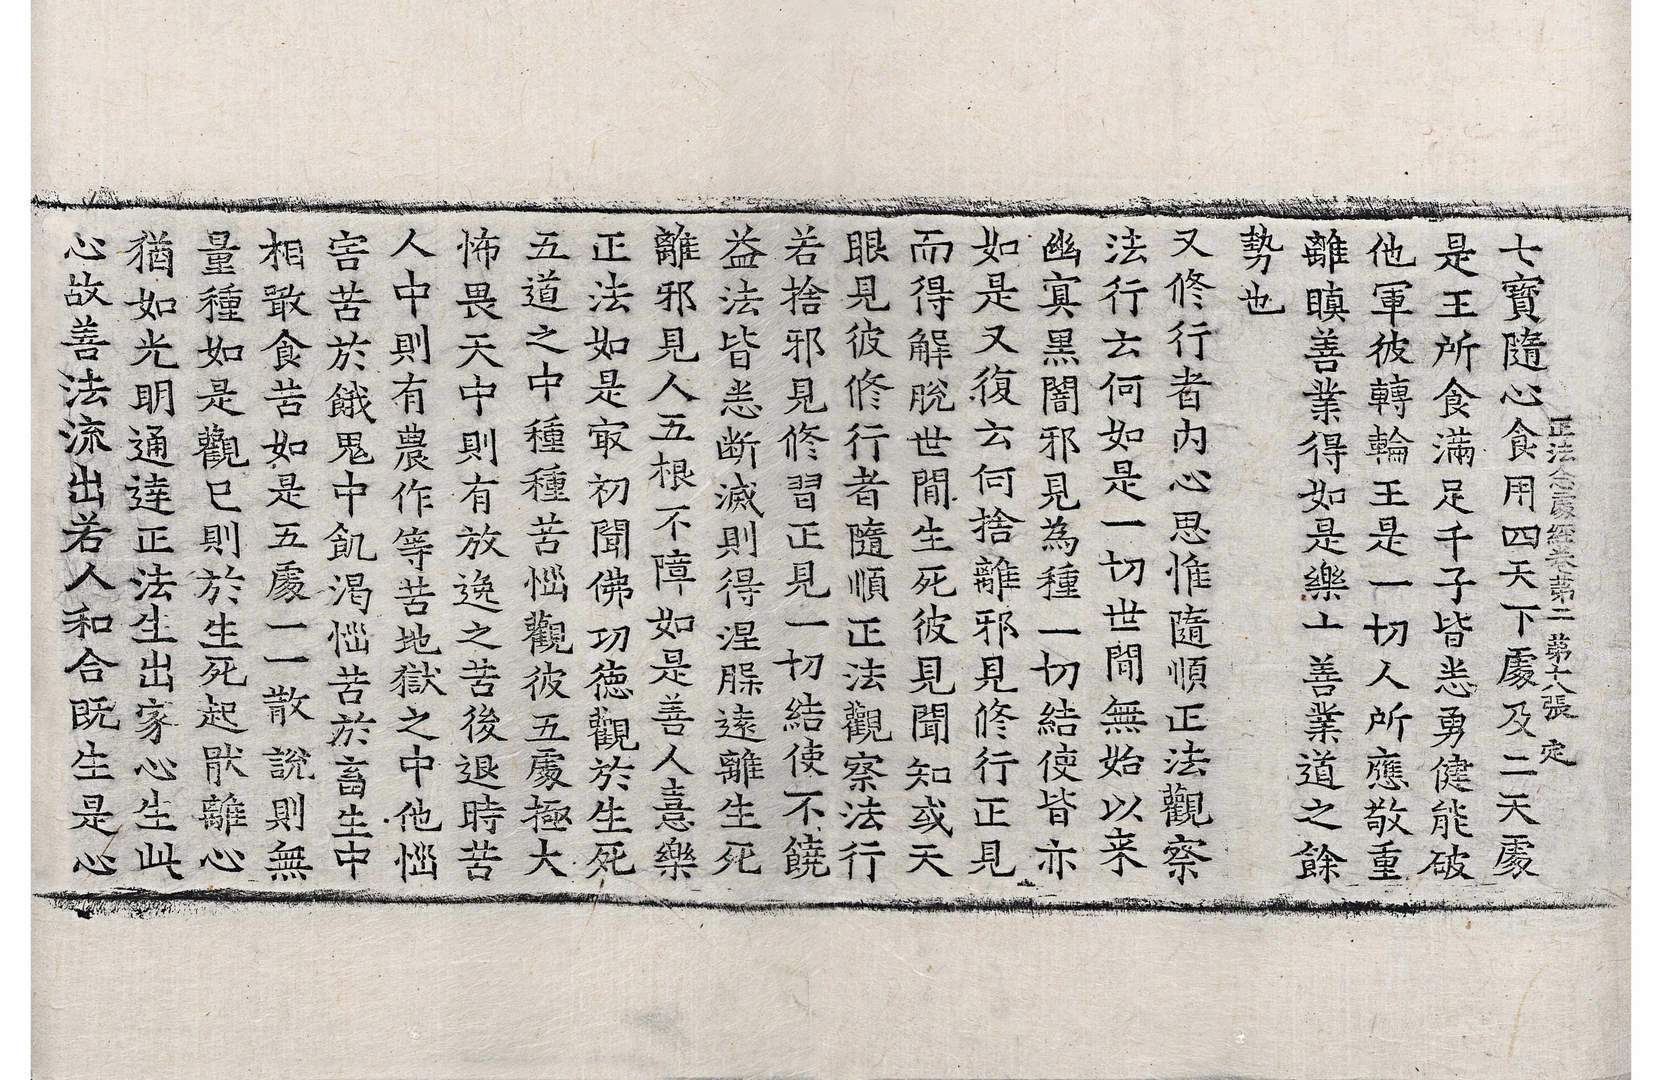 正法念處經卷第二 第十八張 定
七寶隨心食用四天下處及二天處
是王所食滿足千子皆悉勇健能破
他軍彼轉輪王是一切人所應敬重
離瞋善業得如是樂十善業道之餘
勢也
又修行者內心思惟隨順正法觀察
法行云何如是一切世間無始以来
幽冥黑闇邪見為種一切結使皆亦
如是又復云何捨離邪見修行正見
而得解脫世間生死彼見聞知或天
眼見彼修行者隨順正法觀察法行
若捨邪見修習正見一切結使不饒
益法皆悉断滅則得涅槃遠離生死
離邪見人五根不障如是善人憙樂
正法如是冣初聞佛功德觀於生死
五道之中種種苦惱觀彼五處極大
怖畏天中則有放逸之苦後退時苦
人中則有農作等苦地獄之中他惱
害苦於餓鬼中飢渴惱苦於畜生中
相噉食苦如是五處一一散說則無
量種如是觀已則於生死起猒離心
猶如光明通達正法生出家心生此
心故善法流出若人和合既生是心